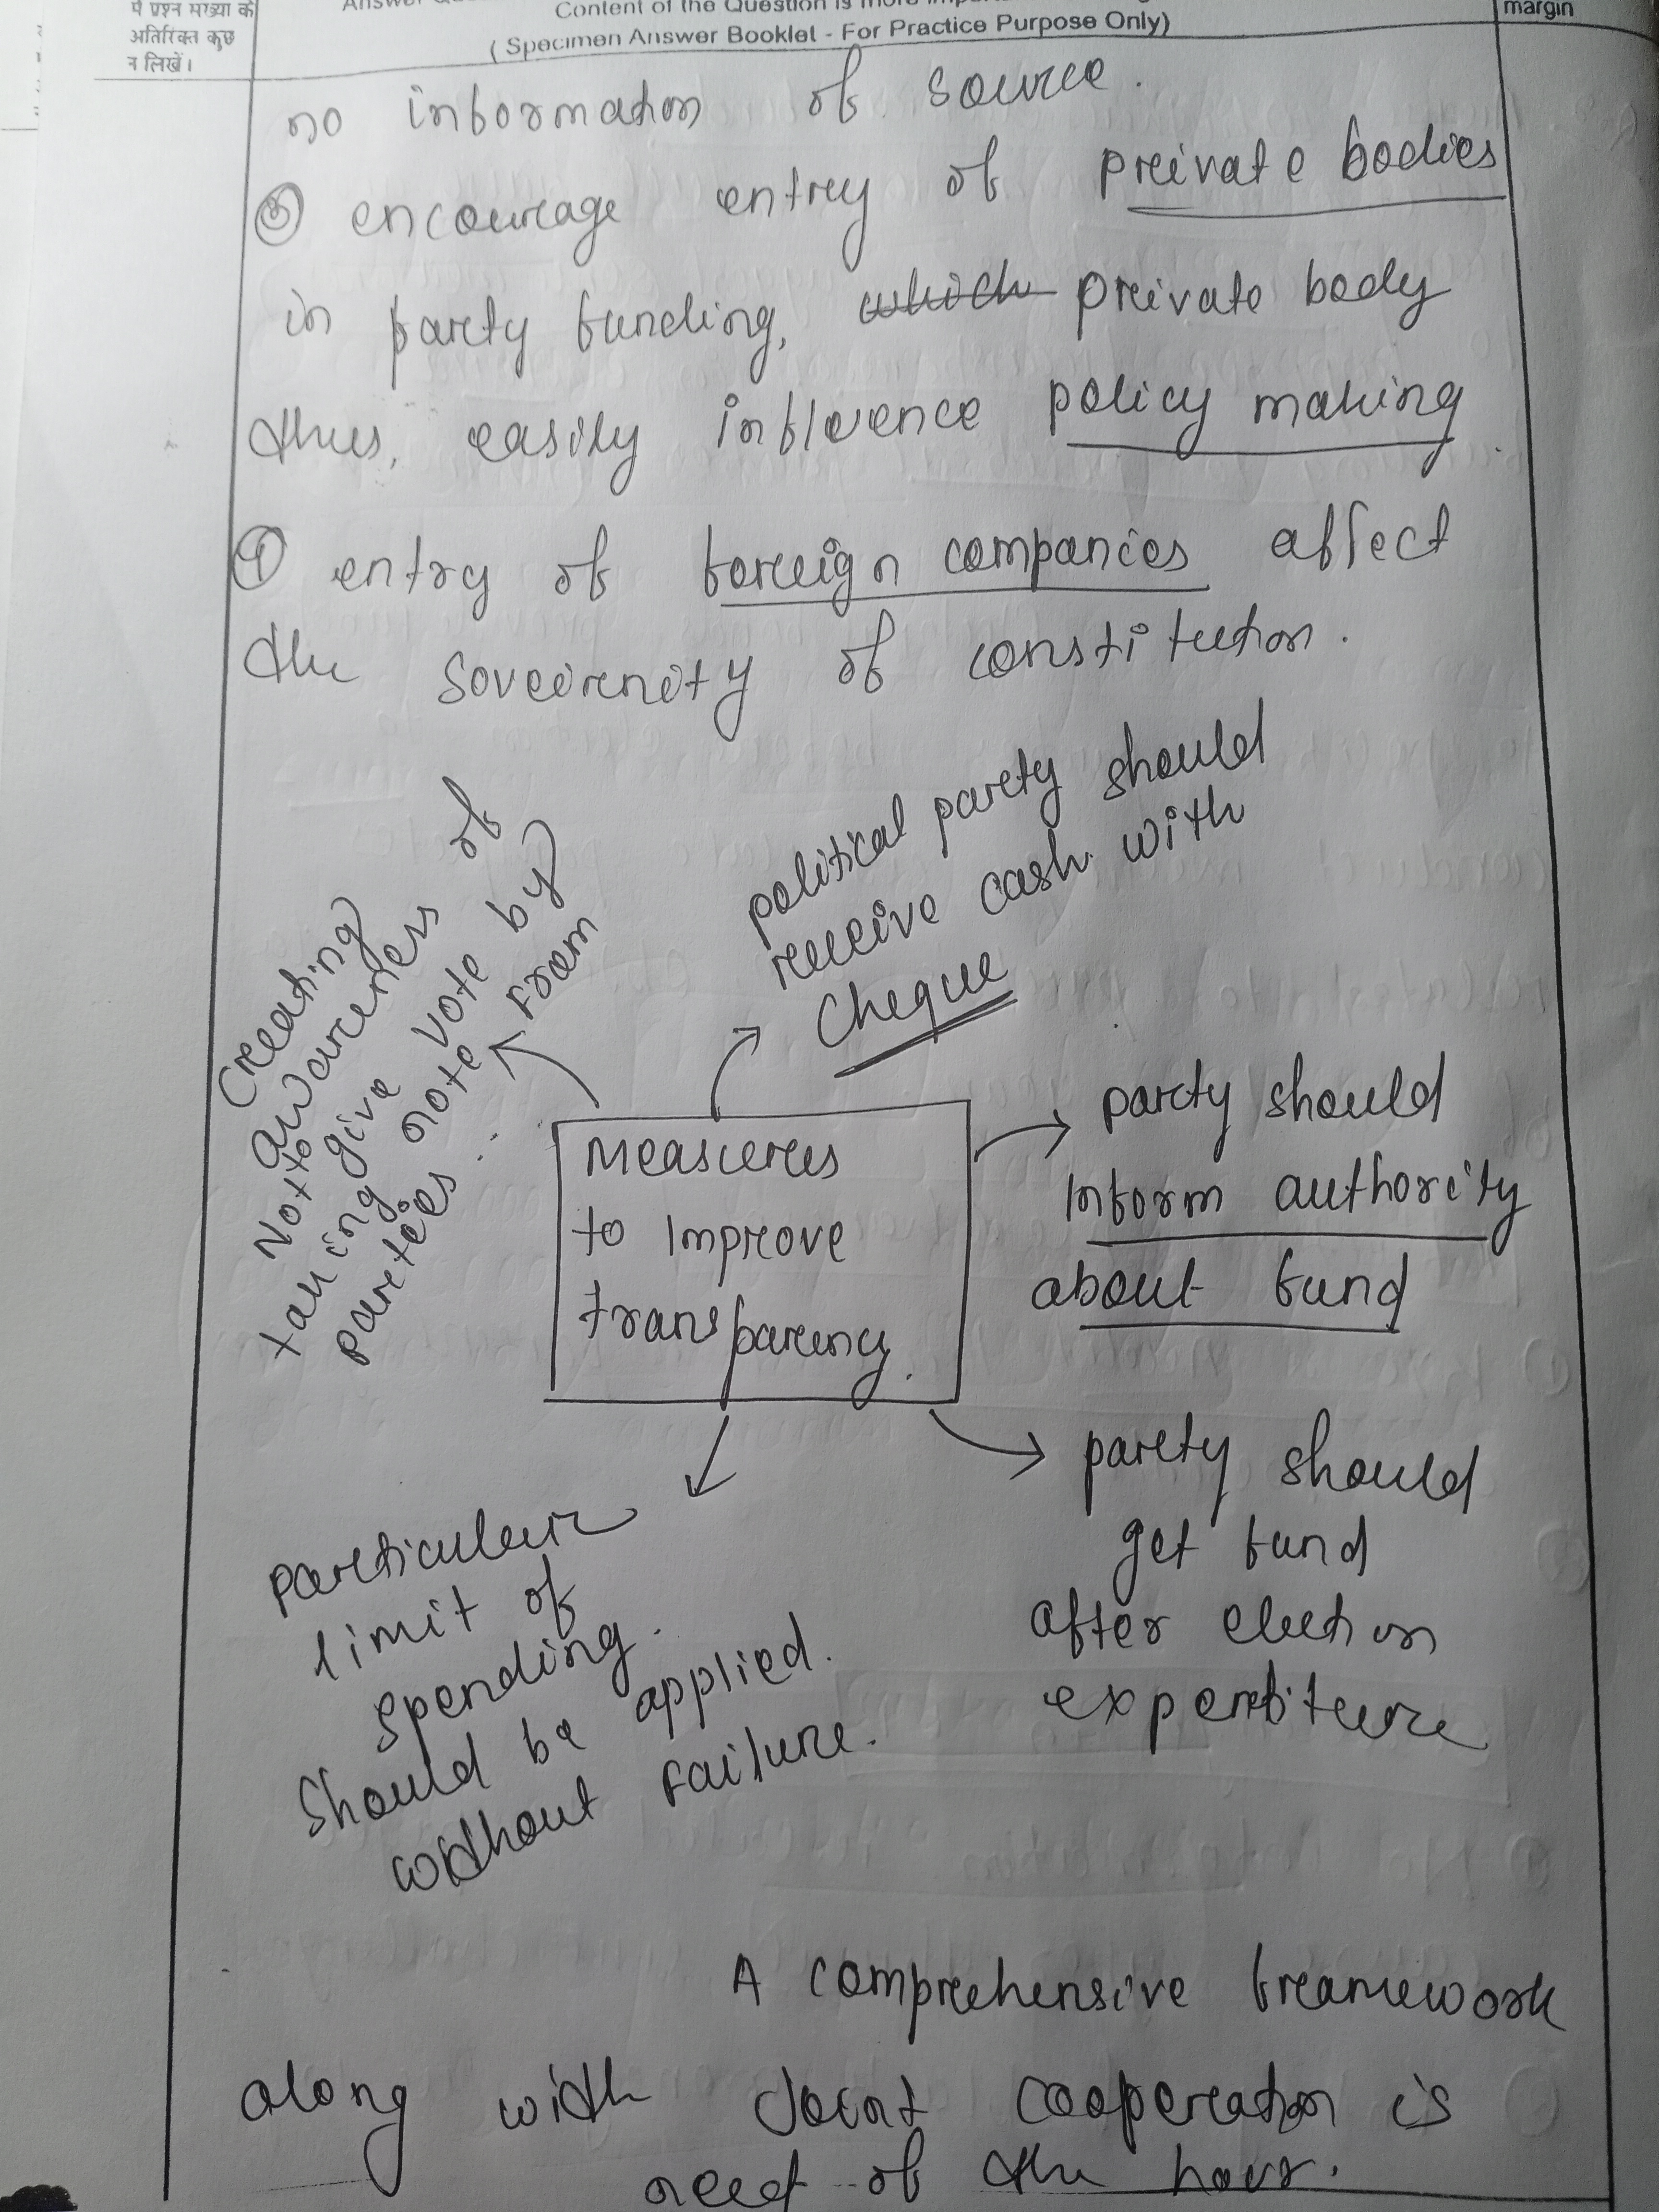 में प्रश्न संख्या के
अतिरिक्त कुछ
न लिखें।
Content of the Question is more
( Specimen Answer Booklet - For Practice Purpose Only)
margin
no information of source.
③ encourage entry of private bodies
in party funding, which private body
thus, easily influence policy making.
④ entry of foreign companies affect
the soveirnity of constitution.
Creating
awareness of
Not to give vote by
taking note from
parties.
political party should
receive cash with
cheque
Measures
to improve
transparency.
party should
inform authority
about fund
party should
get fund
after election
expenditure
particular
limit of
spending.
should be applied.
without failure.
A comprehensive framework
along with Joint cooperation is
need of the hour.